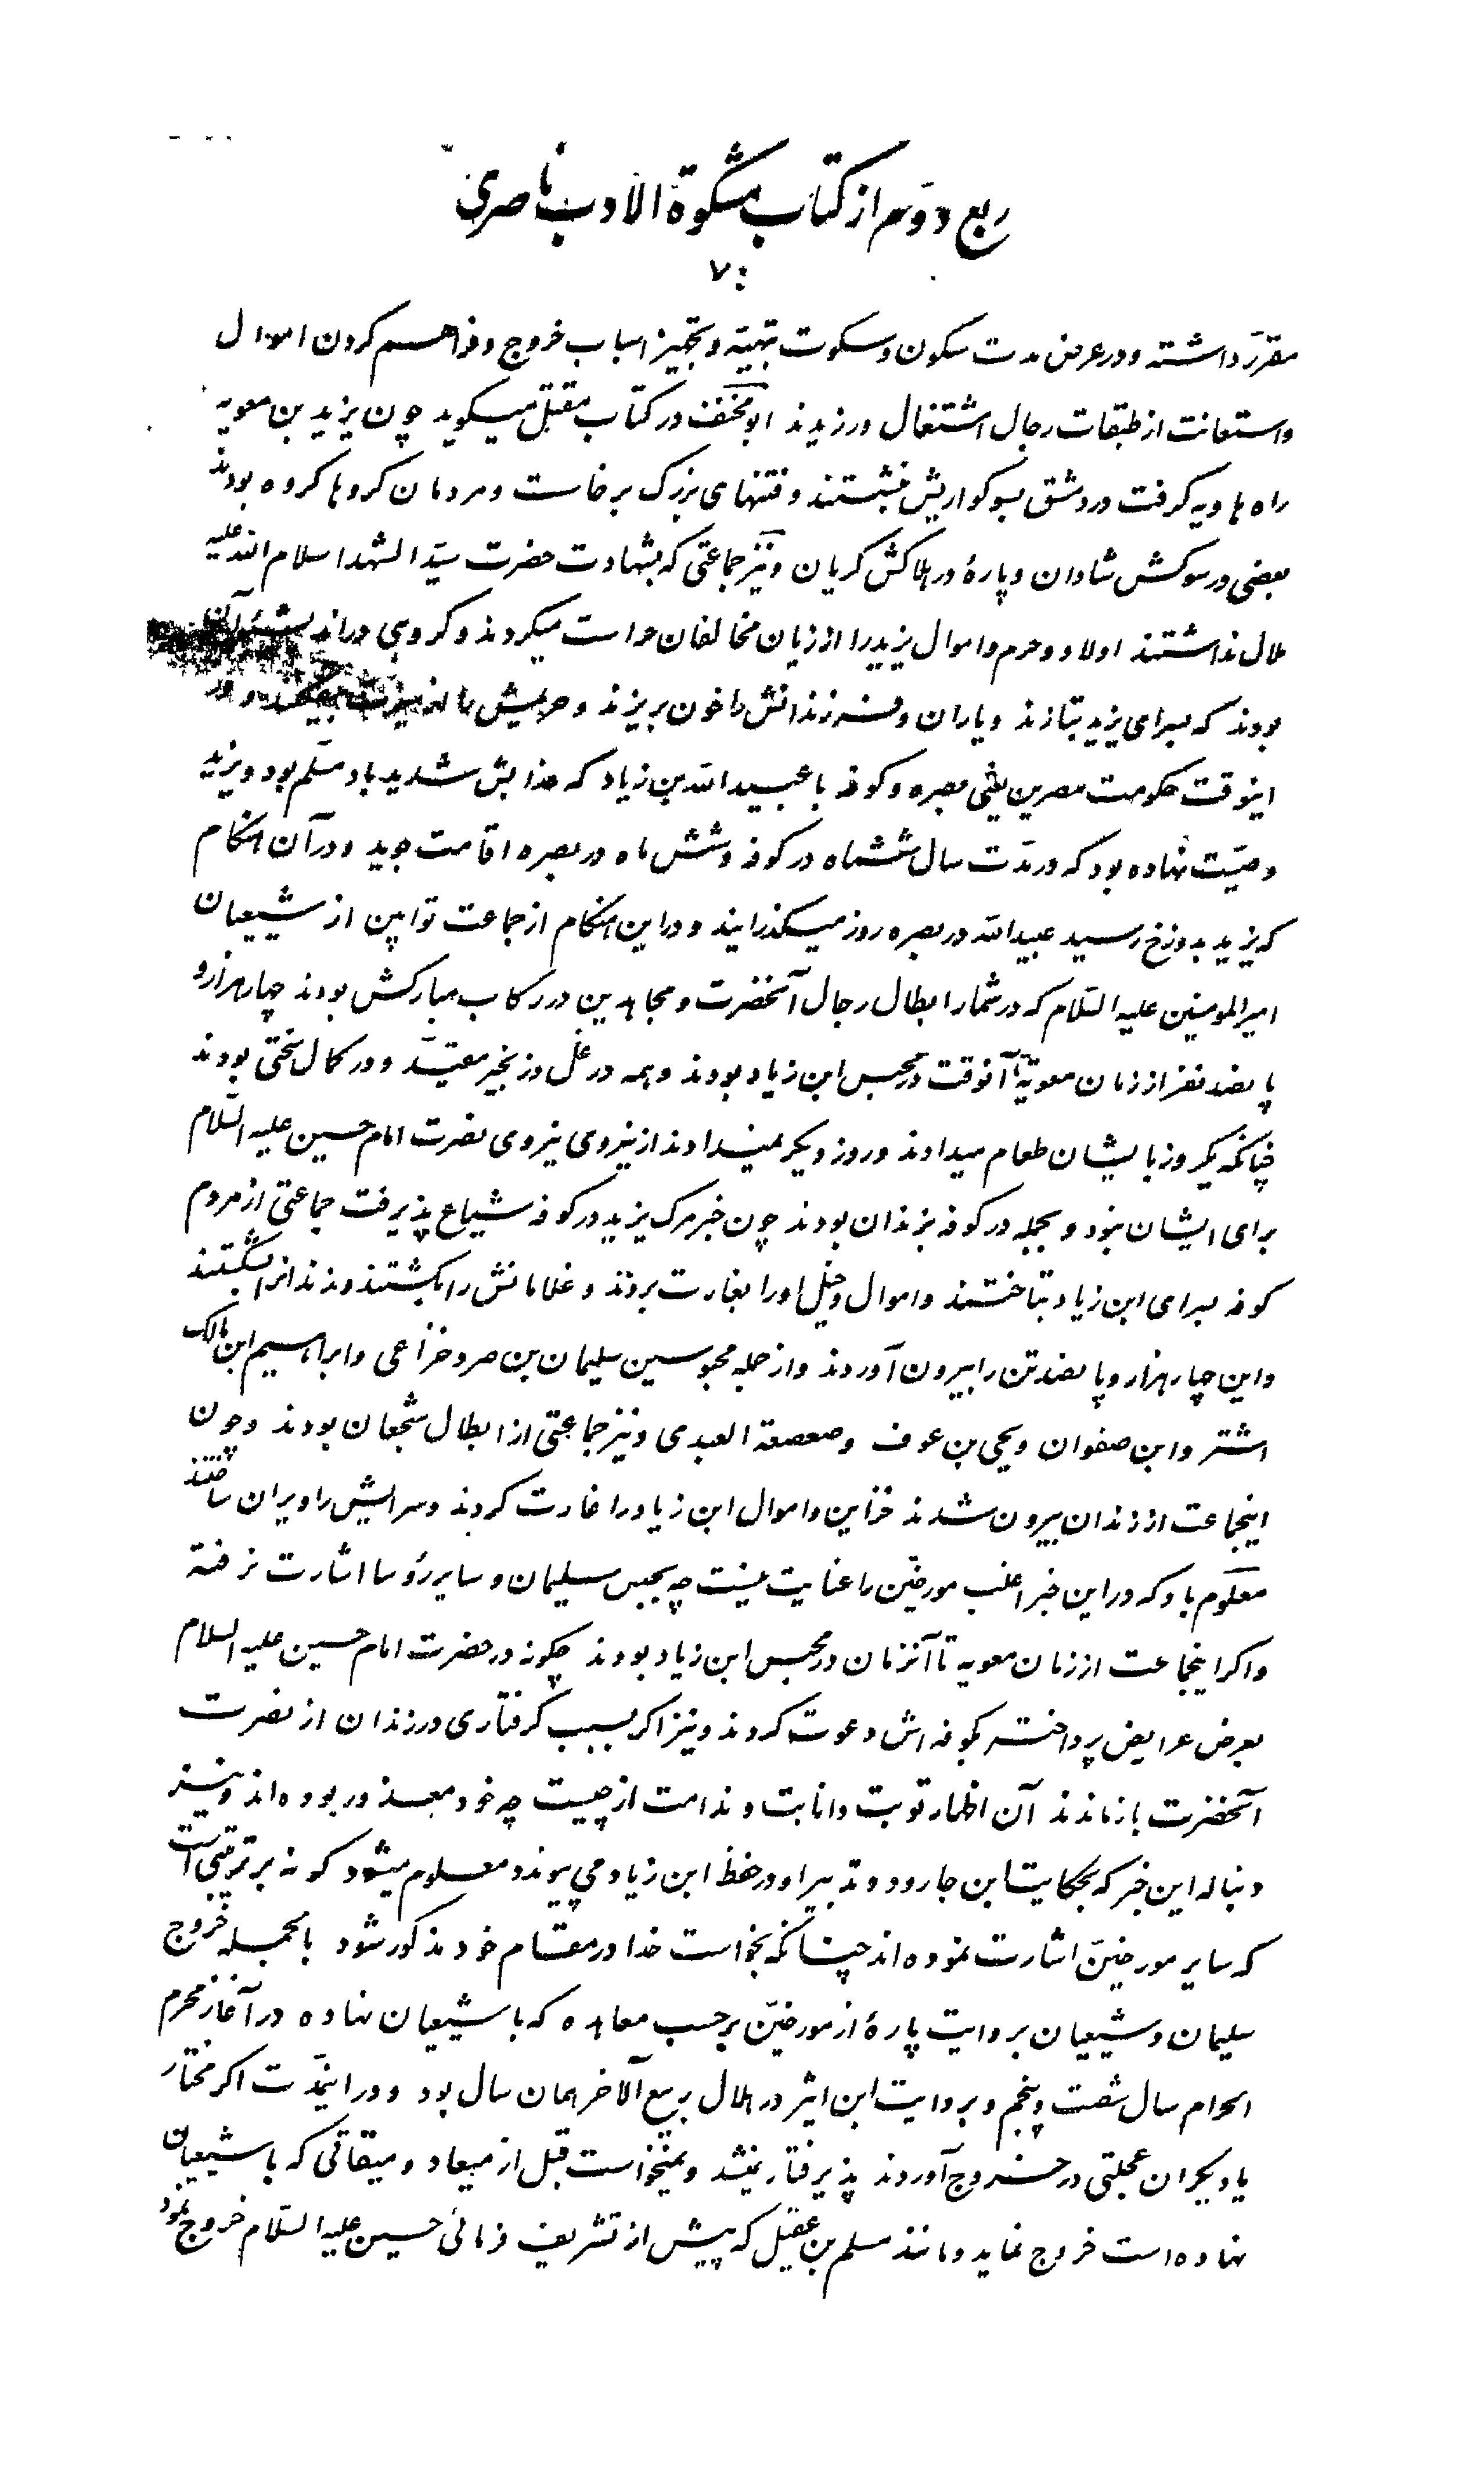 ربع دوّم از کتاب مشکوة الادب ناصری
۷۰
مقرّر داشته و در عرض مدت سکون و سکوت بتهیّه و تجهیز اسباب خروج و فراهم کردن اموال
و استعانت از طبقات رجال اشتغال ورزیدند ابو مخنف در کتاب مقتل میکوید چون یزید بن معویه
راه هاویه کرفت در دمشق بسوکواریش بنشستند و فتنهای بزرک برخاست و مردمان کروها کروه بودند
بعضی در سوکش شادان و پارۀ در هلاکش کریان و نیز جماعتی که بشهادت حضرت سیّد الشهدا سلام الله علیه
ملال نداشتند اولاد و حرم و اموال یزید را از زیان مخالفان حراست میکردند و کروهی در اندیشۀ آن
بودند که بسرای یزید بتازند و یاران و فرزندانش را خون بریزند و حریمش را و در
اینوقت حکومت مصرین یعنی بصره و کوفه با عبیدالله بن زیاد که عذابش شدید باد مسلّم بود و یزید
وصیّت نهاده بود که در مدّت سال ششماه در کوفه و شش ماه در بصره اقامت جوید و در آن هنکام
که یزید بدوزخ رسید عبیدالله در بصره روز میکذرانید و در این هنکام از جماعت توابین از شیعیان
امیر المومنین علیه السّلام که در شمار ابطال رجال آنحضرت و مجاهدین در رکاب مبارکش بودند چهار هزار و
پانصد نفر از زمان معویه تا آنوقت در محبس ابن زیاد بودند و همه در غل و زنجیر مقیّد و در کمال سختی بودند
چنانکه یکروز با یشان طعام میدادند و روز دیکر نمیدادند از نیروی نیروی نصرت امام حسین علیه السّلام
برای ایشان نبود و بجمله در کوفه بزندان بودند چون خبر مرک یزید در کوفه شیاع پذیرفت جماعتی از مردم
کوفه بسرای ابن زیاد بتاختند و اموال و خیل او را بغارت بردند و غلامانش را بکشتند و زندانرا بشکستند
و این چهار هزار و پانصد تن را بیرون آوردند و از جمله محبوسین سلیمان بن صرد خزاعی و ابراهیم ابن مالک
اشتر و ابن صفوان و یحیی بن عوف و صعصعة العبدی و نیز جماعتی از ابطال شجعان بودند و چون
اینجماعت از زندان بیرون شدند خزاین و اموال ابن زیاد را غارت کردند و سرایش را ویران ساختند
معلوم باد که در این خبر اغلب مورخین را عنایت نیست چه بحبس سلیمان و سایر رؤسا اشارت نرفته
و اکر اینجماعت از زمان معویه تا آنزمان در محبس ابن زیاد بودند چکونه در حضرت امام حسین علیه السلام
بعرض عرایض پرداخته بکوفه اش دعوت کردند و نیز اکر بسبب کرفتاری در زندان از نصرت
آنحضرت بازماندند آن اظهار توبت و انابت و ندامت از چیست چه خود معذور بوده اند و نیز
دنباله این خبر که بحکایت ابن جارود و تدبیر او در حفظ ابن زیاد می پیوندد معلوم میشود که نه بر ترتیبی است
که سایر مورخین اشارت نموده اند چنانکه بخواست خدا در مقام خود مذکور شود بالجمله خروج
سلیمان و شیعیان بروایت پارۀ از مورخین بر حسب معاهده که با شیعیان نهاده در آغاز محرم
الحرام سال شصت و پنجم و بروایت ابن اثیر در هلال ربیع الآخر همان سال بود و در اینمّدت اکر مختار
یا دیکران عجلتی در خروج آوردند پذیرفتار نمیشد و نمیخواست قبل از میعاد و میقاتی که با شیعیان
نهاده است خروج نماید و مانند مسلم بن عقیل که پیش از تشریف فرمائی حسین علیه السّلام خروج نمود